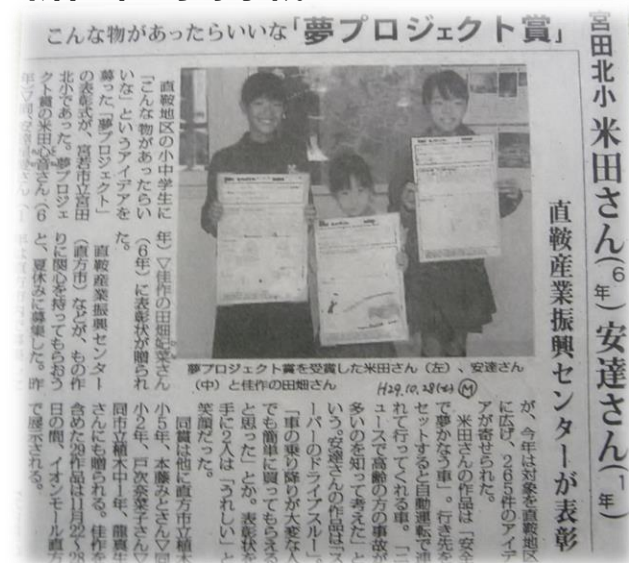 こんな物があったらいいな「夢プロジェクト賞」
宮田北小 米田さん(6年) 安達さん(1年)
直鞍産業振興センターが表彰
直鞍地区の小中学生に
「こんな物があったらい
いな」というアイデアを
募った「夢プロジェクト」
の表彰式が、宮若市立宮田
北小であった。夢プロジェ
クト賞の米田
さん(6
年)
年)▽佳作の田畑
さん
(6年)に表彰状が贈られ
た。
直鞍産業振興センター
(直方市)などが、もの作
りに関心を持ってもらおう
と、夏休みに募集した。昨
夢プロジェクト賞を受賞した米田さん(左)、安達さん
(中)と佳作の田畑さん
H29.10.28(土) M
が、今年は対象を直鞍地区
に広げ、265件のアイデ
アが寄せられた。
米田さんの作品は「安全
で夢かなう車」。行き先を
セットすると自動運転で連
れて行ってくれる車。「ニ
ュースで高齢の方の事故が
多いのを知って考えた」と
いう。安達さんの作品は「ス
ーパーのドライブスルー」。
「車の乗り降りが大変な人
でも簡単に買ってもらえる
と思った」とか。表彰状を
手に2人は「うれしい」と
笑顔だった。
同賞は他に直方市立植木
小5年、本藤みとさん▽同
小2年、戸次奈菜子さん▽
同市立植木中1年、龍真生
さんにも贈られる。佳作を
含めた29作品は11月22～28
日の間、イオンモール直方
で展示される。